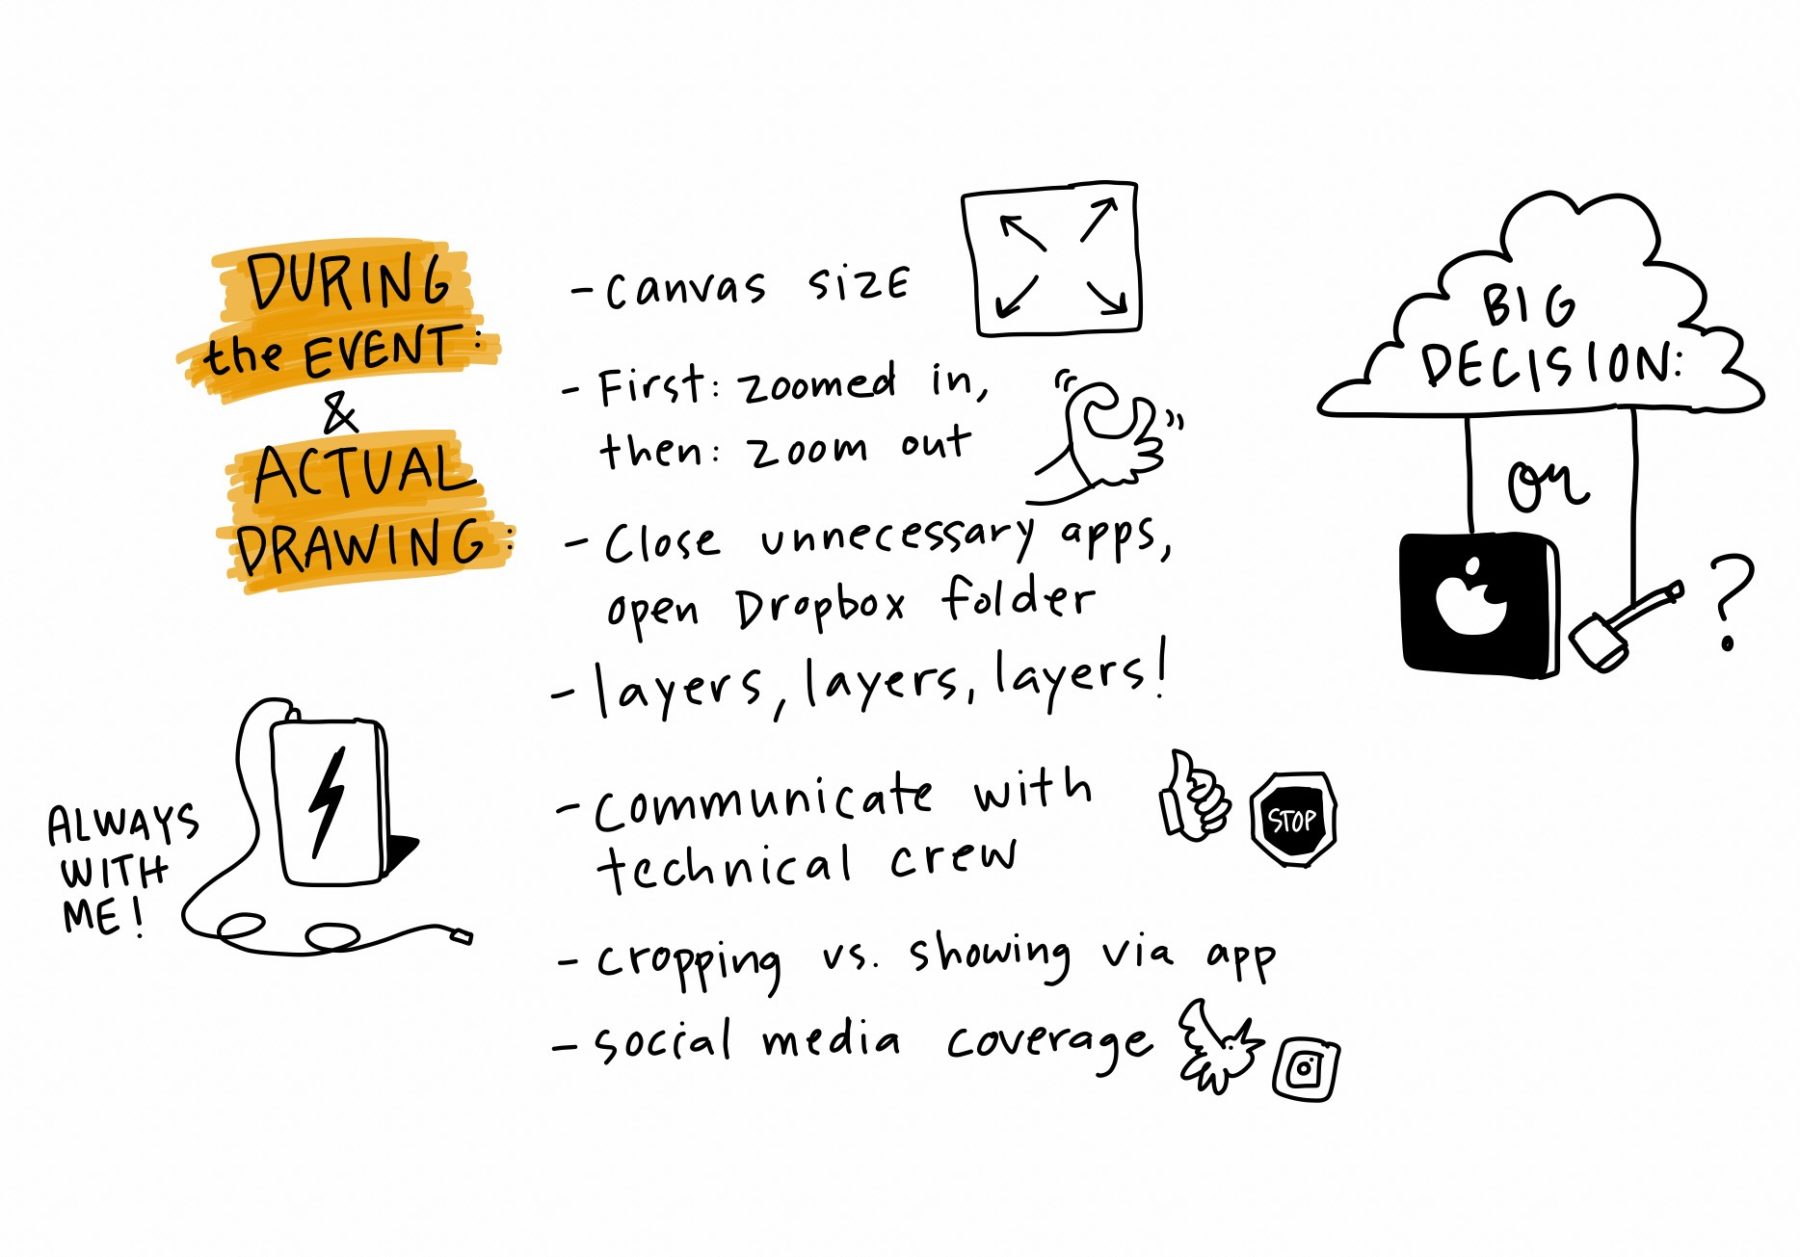 DURING
the EVENT:
&
ACTUAL
DRAWING:
ALWAYS
WITH
ME!
- canvas size
- First: zoomed in,
then: zoom out
- Close unnecessary apps,
open Dropbox folder
- layers, layers, layers!
- communicate with
technical crew
STOP
- cropping vs. showing via app
- social media coverage
BIG
DECISION:
or
?